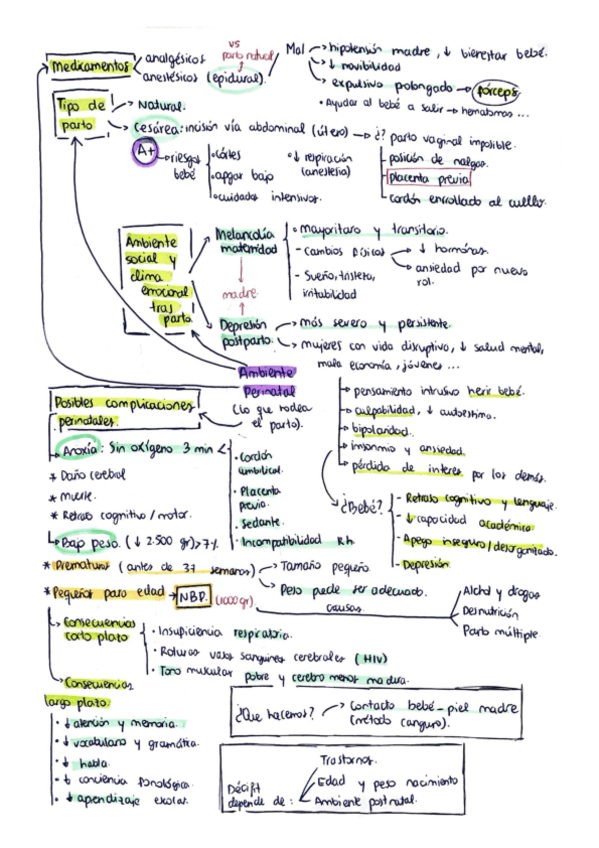 vs
parto natural
Medicamentos
analgésicos
anestésicos (epidural)
Mal → hipotensión madre, ↓ bienestar bebé.
↓ movibilidad
expulsivo prolongado → fórceps
• Ayudar al bebé a salir → hematomas ...
Tipo de parto
→ Natural.
→ Cesárea: incisión vía abdominal (útero) → ¿? parto vaginal imposible.
posición de nalgas.
placenta previa
cordón enrollado al cuello.
A+
→ riesgos bebé
• cortes
• apgar bajo
• cuidados intensivos.
• ↓ respiración (anestesia)
Ambiente social y clima emocional tras parto
Melancolía maternidad
• mayoritario y transitorio.
- Cambios físicos
→ ↓ hormonas.
→ ansiedad por nuevo rol.
- Sueño, tristeza, irritabilidad
madre
Depresión postparto.
→ más severo y persistente.
→ mujeres con vida disruptiva, ↓ salud mental, mala economía, jóvenes ...
Ambiente Perinatal
(lo que rodea el parto).
→ pensamiento intrusivo herir bebé.
→ culpabilidad, ↓ autoestima.
→ bipolaridad.
→ insomnio y ansiedad.
→ pérdida de interes por los demás.
¿Bebé?
- Retraso cognitivo y lenguaje.
- ↓ capacidad académica
- Apego inseguro/desorganizado.
- Depresión
Posibles complicaciones perinatales.
→ Anoxia: Sin oxígeno 3 min <
• Cordón umbilical.
• Placenta previa.
• Sedante.
• Incompatibilidad Rh.
* Daño cerebral
* Muerte.
* Retraso cognitivo/motor.
→ Bajo peso. (↓ 2.500 gr) > 7%
* Prematuros (antes de 37 semanas)
→ Tamaño pequeño.
→ Peso puede ser adecuado.
* Pequeños para edad → NBP. (1000gr)
causas
Alchol y drogas
Desnutrición
Parto múltiple
→ Consecuencias corto plazo
• Insuficiencia respiratoria.
• Roturas vasos sanguineos cerebrales (HIV)
• Tono muscular pobre y cerebro menos madura.
→ Consecuencias largo plazo.
• ↓ atención y memoria.
• ↓ vocabulario y gramática.
• ↓ habla.
• ↓ conciencia fonológica.
• ↓ aprendizaje escolar.
¿Que hacemos? → Contacto bebé-piel madre
(método canguro).
Décifit depende de:
Trastornos.
Edad y peso nacimiento
Ambiente postnatal.